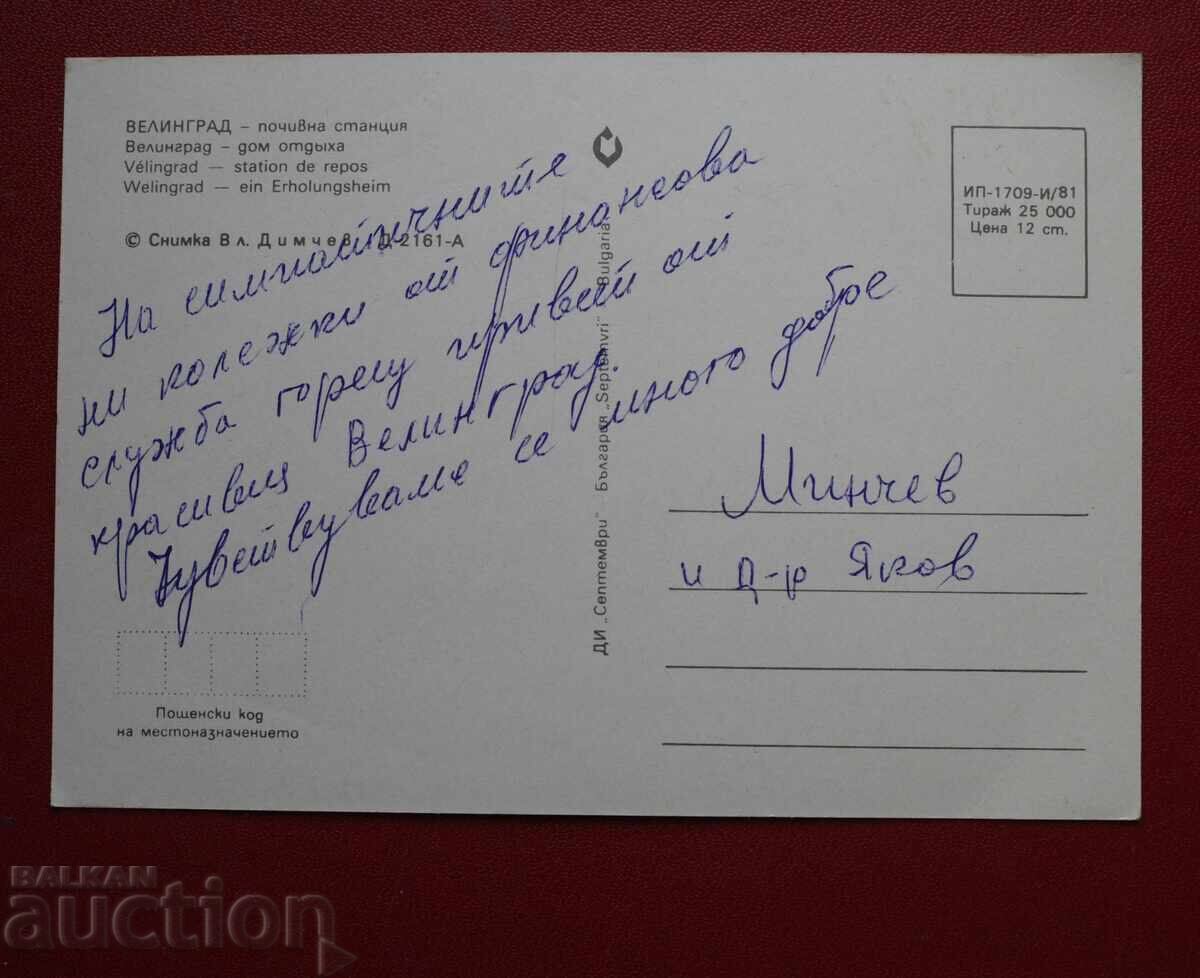 ВЕЛИНГРАД – почивна станция
Велинград – дом отдыха
Vélingrad — station de repos
Welingrad — ein Erholungsheim
© Снимка Вл. Димчев Д-2161-А
На симпатичните
ни колежки от финансова
служба горещ привет от
красивия Велинград.
Чувствуваме се много добре
Пощенски код
на местоназначението
ДИ „Септември" България „Septemvri" Bulgaria
ИП-1709-И/81
Тираж 25 000
Цена 12 ст.
Минчев
и д-р Яков
BALKAN
auction